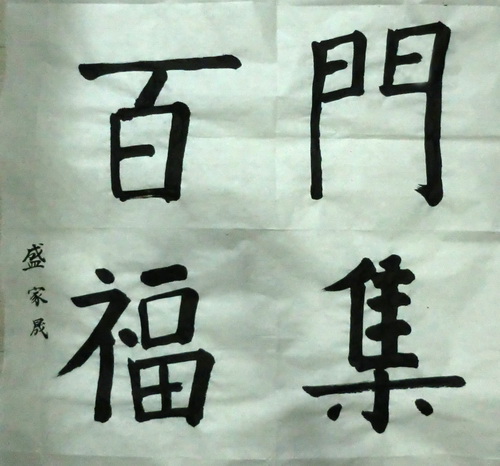 門集
百福
盛家晟